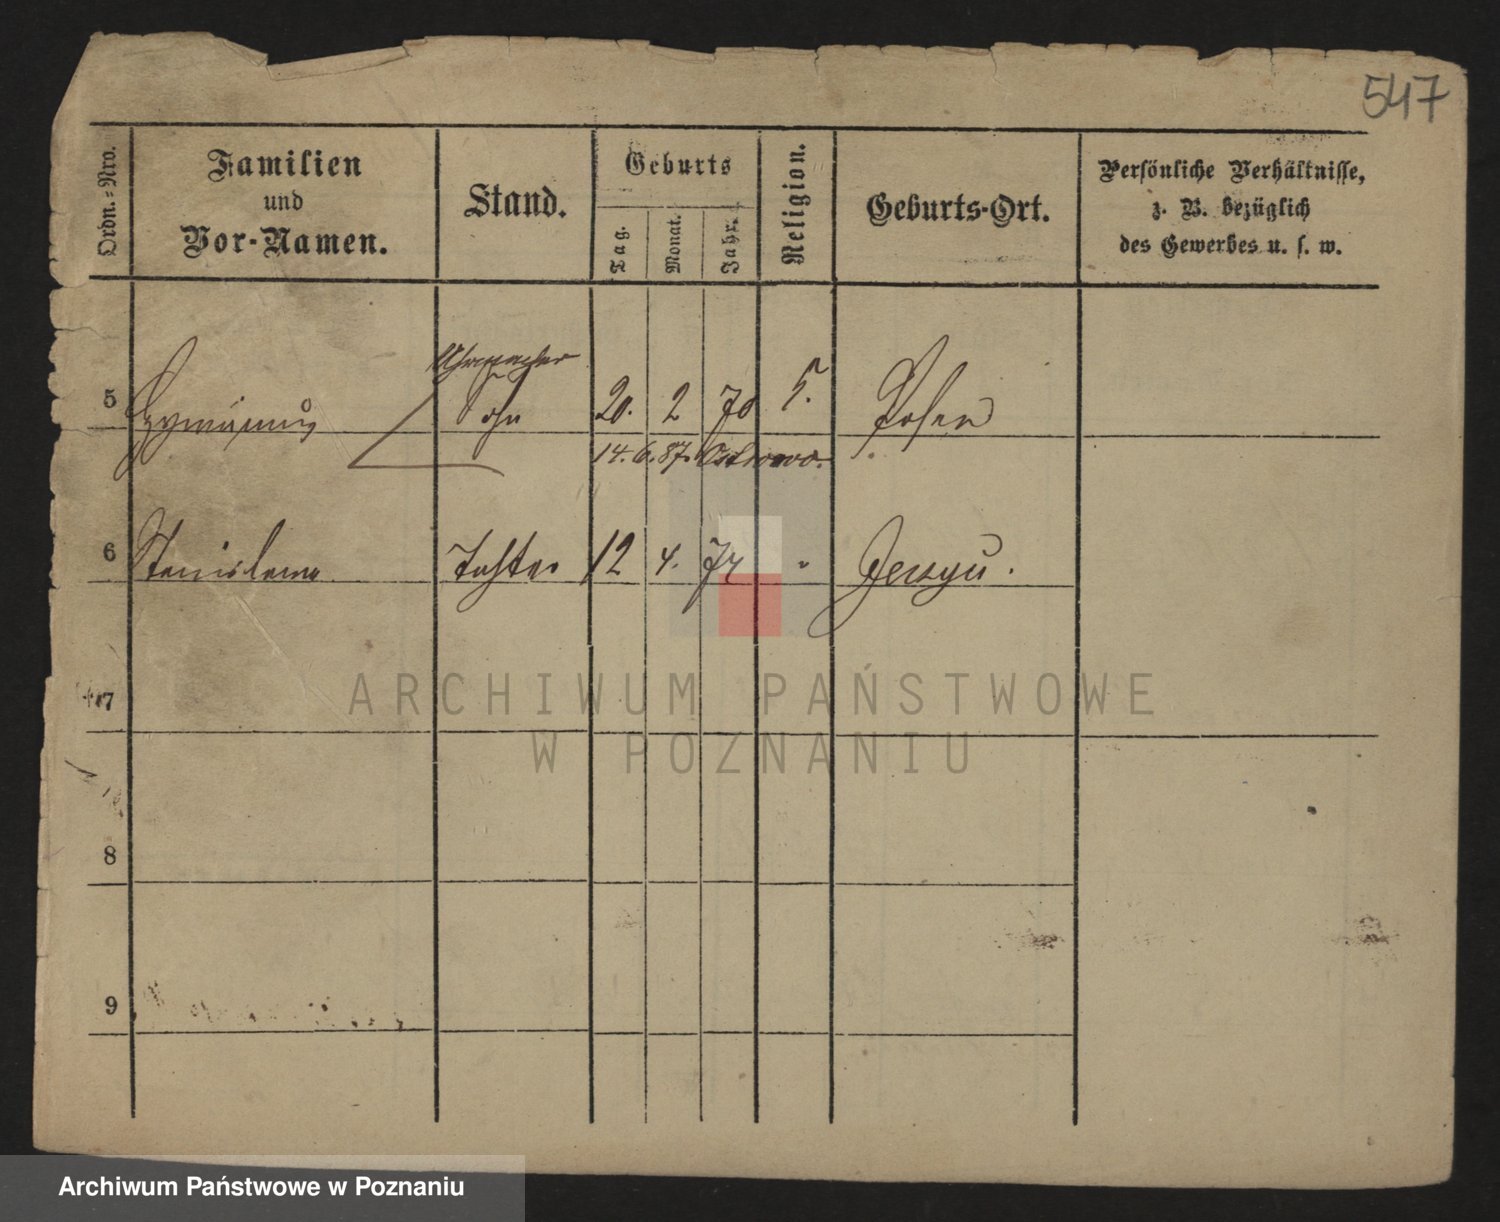 547
Ordn.-Nro.
Familien
und
Vor-Namen.
Stand.
Geburts
Tag.
Monat.
Jahr.
Religion.
Geburts-Ort.
Persönliche Verhältnisse,
z. B. bezüglich
des Gewerbes u. s. w.
Uhrmacher
5 Sohn 20. 2 70 Posen
14. 6. 87. Ostrowo.
6 Stanislawa Tochter 12 4. 74 " Jerzyce.
7
8
9
ARCHIWUM PAŃSTWOWE
W POZNANIU
Archiwum Państwowe w Poznaniu